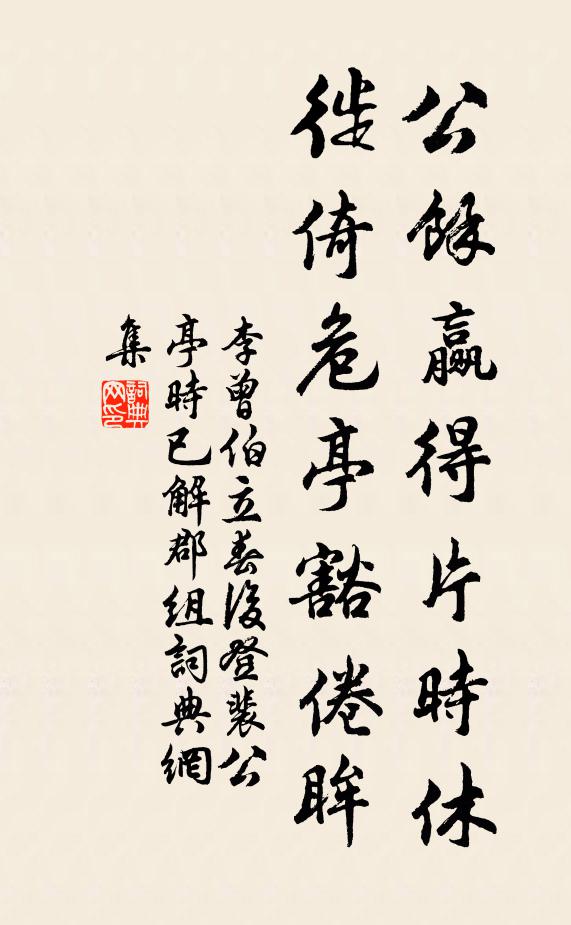 公餘贏得片時休
徙倚危亭豁倦眸
李曾伯立春後登裴公
亭時已解郡組詞典網
集
詞典
网印